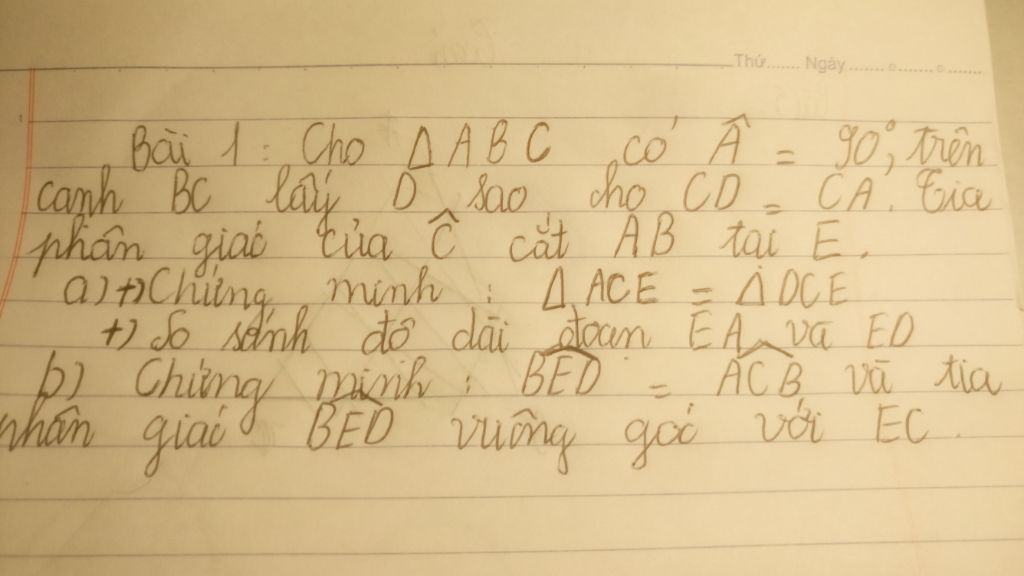 Thứ...... Ngày....... ........ .......
Bài 1 : Cho Δ ABC có Â = 90°, trên
cạnh BC lấy D sao cho CD = CA. Tia
phân giác của Ĉ cắt AB tại E.
a) +) Chứng minh : Δ ACE = Δ DCE
+) So sánh độ dài đoạn EA và ED
b) Chứng minh : BED = ACB và tia
phân giác BED vuông góc với EC.